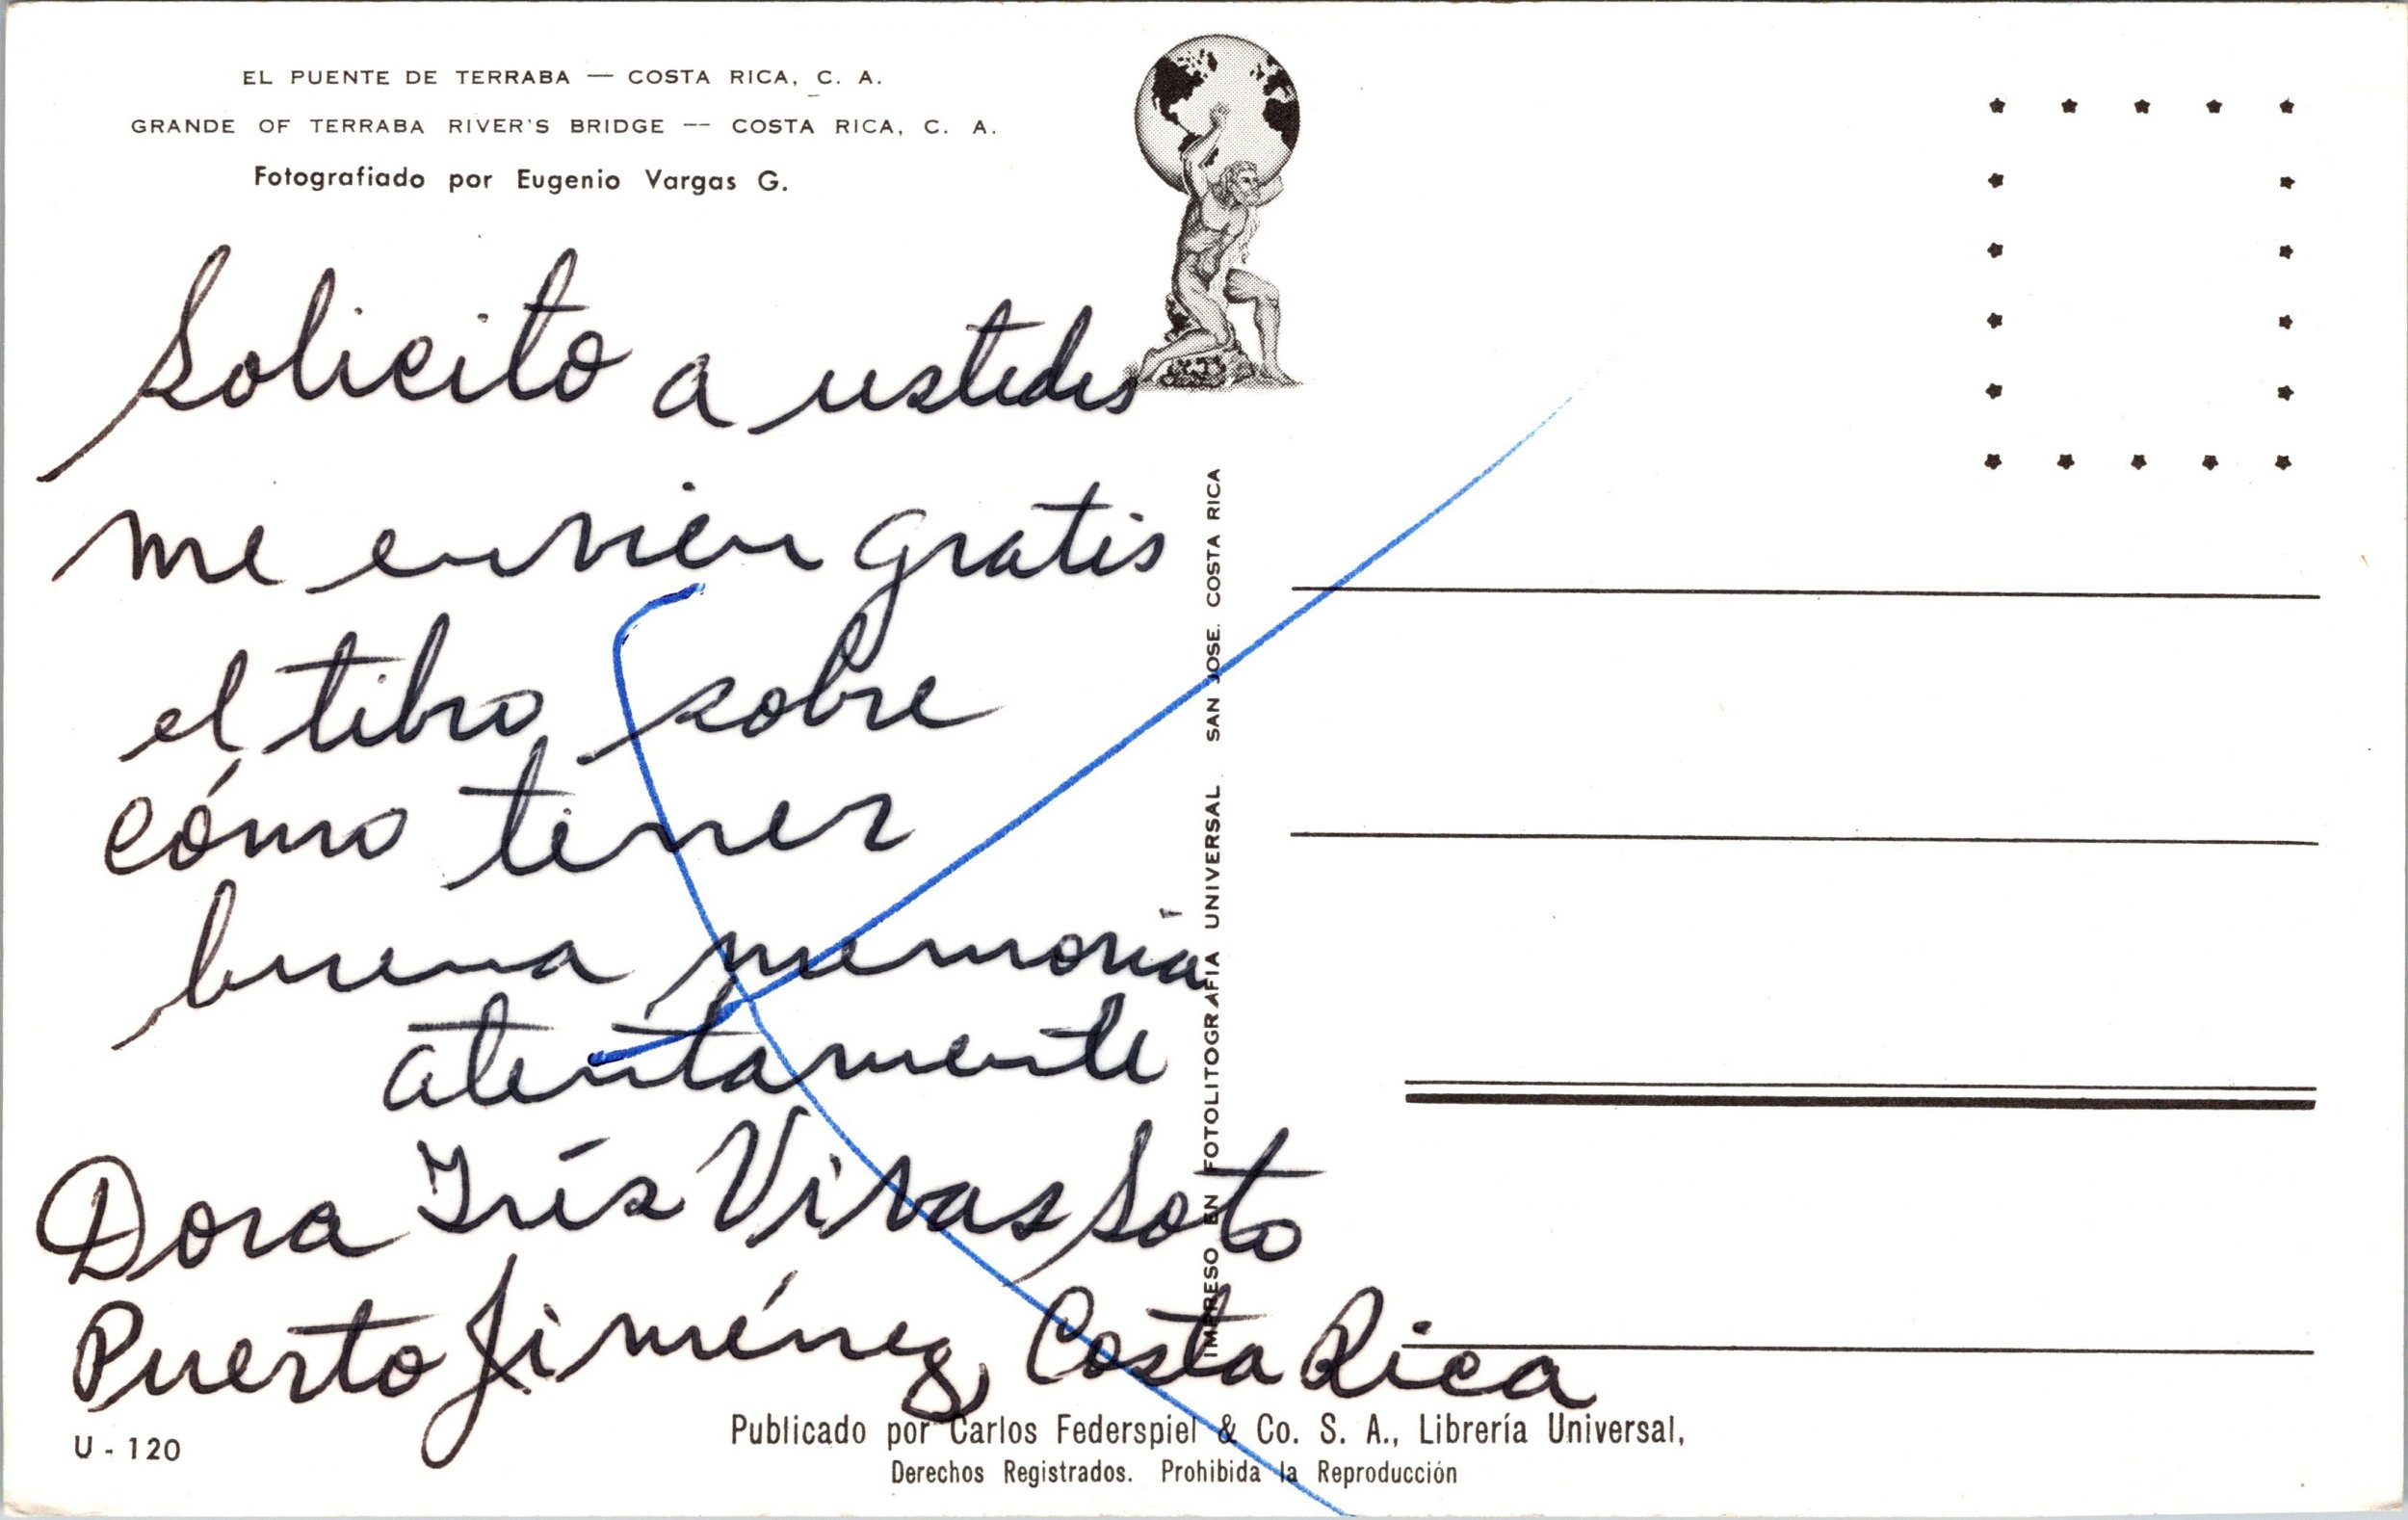 EL PUENTE DE TERRABA — COSTA RICA, C. A.
GRANDE OF TERRABA RIVER'S BRIDGE -- COSTA RICA, C. A.
Fotografiado por Eugenio Vargas G.
Solicito a ustedes
me envien gratis
el libro sobre
cómo tener
buena memoria
atentamente
Dora Irís Vivas Soto
Puerto Jiménez, Costa Rica
IMPRESO EN FOTOLITOGRAFIA UNIVERSAL. SAN JOSE. COSTA RICA
U - 120
Publicado por Carlos Federspiel & Co. S. A., Librería Universal,
Derechos Registrados. Prohibida la Reproducción